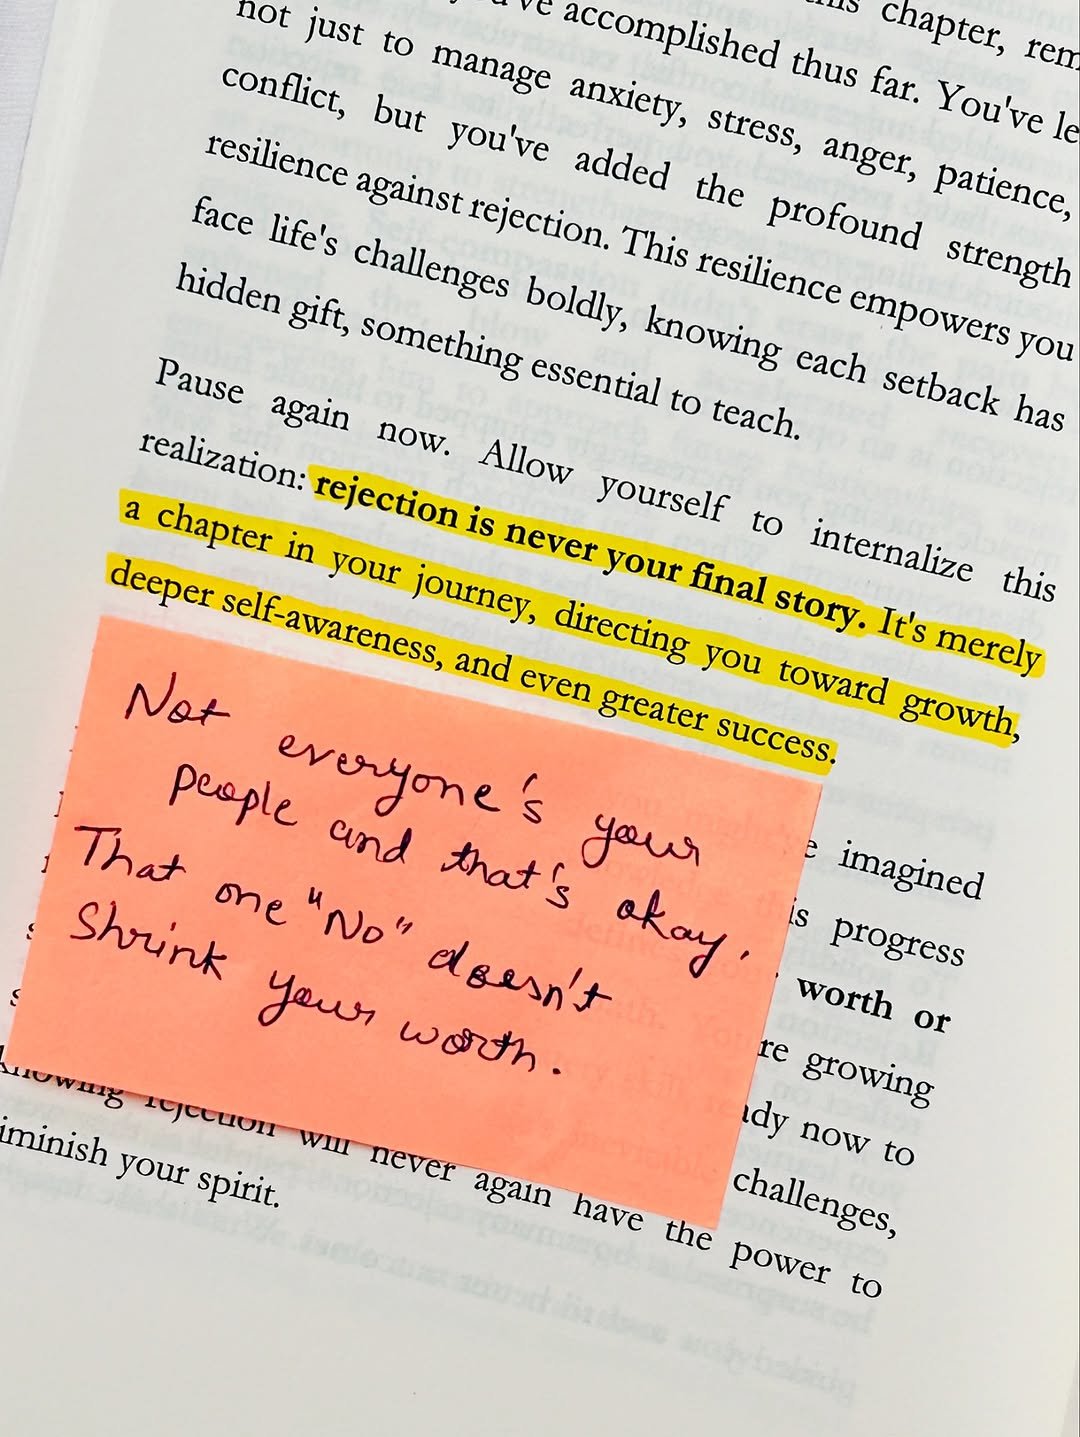 this chapter, rem
you've accomplished thus far. You've le
not just to manage anxiety, stress, anger, patience,
conflict, but you've added the profound strength
resilience against rejection. This resilience empowers you
face life's challenges boldly, knowing each setback has
hidden gift, something essential to teach.
Pause again now. Allow yourself to internalize this
realization: rejection is never your final story. It's merely
a chapter in your journey, directing you toward growth,
deeper self-awareness, and even greater success.
Not everyone's your
people and that's okay.
That one "No" doesn't
Shrink your worth.
imagined
is progress
worth or
re growing
ady now to
challenges,
knowing rejection will never again have the power to
iminish your spirit.